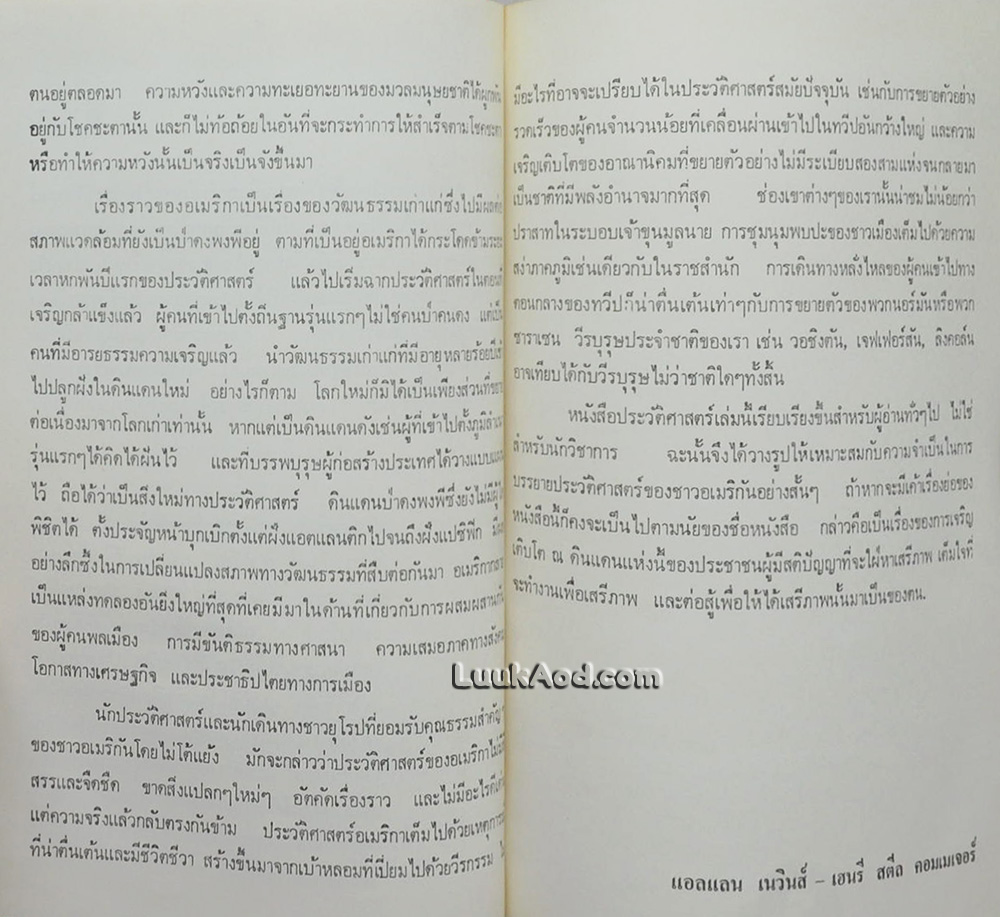 ตนอยู่ตลอดมา ความหวังและความทะเยอทะยานของมวลมนุษยชาติได้ผูกพัน
อยู่กับโชคชะตานั้น และก็ไม่ท้อถอยในอันที่จะกระทำการให้สำเร็จตามโชคชะตา
หรือทำให้ความหวังนั้นเป็นจริงเป็นจังขึ้นมา
เรื่องราวของอเมริกาเป็นเรื่องของวัฒนธรรมเก่าแก่ซึ่งไปมีผลต่อ
สภาพแวดล้อมที่ยังเป็นป่าดงพงพีอยู่ ตามที่เป็นอยู่อเมริกาได้กระโดดข้ามระยะ
เวลาหกพันปีแรกของประวัติศาสตร์ แล้วไปเริ่มฉากประวัติศาสตร์ในตอนที่
เจริญกล้าแข็งแล้ว ผู้คนที่เข้าไปตั้งถิ่นฐานรุ่นแรกๆไม่ใช่คนป่าคนดง แต่เป็น
คนที่มีอารยธรรมความเจริญแล้ว นำวัฒนธรรมเก่าแก่ที่มีอายุหลายร้อยปีเข้า
ไปปลูกฝังในดินแดนใหม่ อย่างไรก็ตาม โลกใหม่ก็มิได้เป็นเพียงส่วนที่ขยาย
ต่อเนื่องมาจากโลกเก่าเท่านั้น หากแต่เป็นดินแดนดังเช่นผู้ที่เข้าไปตั้งภูมิลำเนา
รุ่นแรกๆได้คิดได้ฝันไว้ และที่บรรพบุรุษผู้ก่อสร้างประเทศได้วางแบบแผน
ไว้ ถือได้ว่าเป็นสิ่งใหม่ทางประวัติศาสตร์ ดินแดนป่าดงพงพีซึ่งยังไม่มีผู้ใด
พิชิตได้ ตั้งประจัญหน้าบุกเบิกตั้งแต่ฝั่งแอตแลนติกไปจนถึงฝั่งแปซิฟิก มีผล
อย่างลึกซึ้งในการเปลี่ยนแปลงสภาพทางวัฒนธรรมที่สืบต่อกันมา อเมริกากลาย
เป็นแหล่งทดลองอันยิ่งใหญ่ที่สุดที่เคยมีมาในด้านที่เกี่ยวกับการผสมผสานกัน
ของผู้คนพลเมือง การมีขันติธรรมทางศาสนา ความเสมอภาคทางสังคม
โอกาสทางเศรษฐกิจ และประชาธิปไตยทางการเมือง
นักประวัติศาสตร์และนักเดินทางชาวยุโรปที่ยอมรับคุณธรรมสำคัญๆ
ของชาวอเมริกันโดยไม่โต้แย้ง มักจะกล่าวว่าประวัติศาสตร์ของอเมริกาไม่มีสี
สรรและจืดชืด ขาดสิ่งแปลกๆใหม่ๆ อัตคัดเรื่องราว และไม่มีอะไรดีเด่น
แต่ความจริงแล้วกลับตรงกันข้าม ประวัติศาสตร์อเมริกาเต็มไปด้วยเหตุการณ์
ที่น่าตื่นเต้นและมีชีวิตชีวา สร้างขึ้นมาจากเบ้าหลอมที่เปี่ยมไปด้วยวีรกรรม
มีอะไรที่อาจจะเปรียบได้ในประวัติศาสตร์สมัยปัจจุบัน เช่นกับการขยายตัวอย่าง
รวดเร็วของผู้คนจำนวนน้อยที่เคลื่อนผ่านเข้าไปในทวีปอันกว้างใหญ่ และความ
เจริญเติบโตของอาณานิคมที่ขยายตัวอย่างไม่มีระเบียบสองสามแห่งจนกลายมา
เป็นชาติที่มีพลังอำนาจมากที่สุด ช่องเขาต่างๆของเรานั้นน่าชมไม่น้อยกว่า
ปราสาทในระบอบเจ้าขุนมูลนาย การชุมนุมพบปะของชาวเมืองเต็มไปด้วยความ
สง่าภาคภูมิเช่นเดียวกับในราชสำนัก การเดินทางหลั่งไหลของผู้คนเข้าไปทาง
ตอนกลางของทวีปก็น่าตื่นเต้นเท่าๆกับการขยายตัวของพวกนอร์มันหรือพวก
ซาราเซน วีรบุรุษประจำชาติของเรา เช่น วอชิงตัน, เจฟเฟอร์สัน, ลิงคอล์น
อาจเทียบได้กับวีรบุรุษไม่ว่าชาติใดๆทั้งสิ้น
หนังสือประวัติศาสตร์เล่มนี้เรียบเรียงขึ้นสำหรับผู้อ่านทั่วๆไป ไม่ใช่
สำหรับนักวิชาการ ฉะนั้นจึงได้วางรูปให้เหมาะสมกับความจำเป็นในการ
บรรยายประวัติศาสตร์ของชาวอเมริกันอย่างสั้นๆ ถ้าหากจะมีเค้าเรื่องย่อของ
หนังสือนี้ก็คงจะเป็นไปตามนัยของชื่อหนังสือ กล่าวคือเป็นเรื่องของการเจริญ
เติบโต ณ ดินแดนแห่งนี้ของประชาชนผู้มีสติปัญญาที่จะใฝ่หาเสรีภาพ เต็มใจที่
จะทำงานเพื่อเสรีภาพ และต่อสู้เพื่อให้ได้เสรีภาพนั้นมาเป็นของตน.
แอลแลน เนวินส์ – เฮนรี่ สตีล คอมเมเจอร์
LuukAod.com